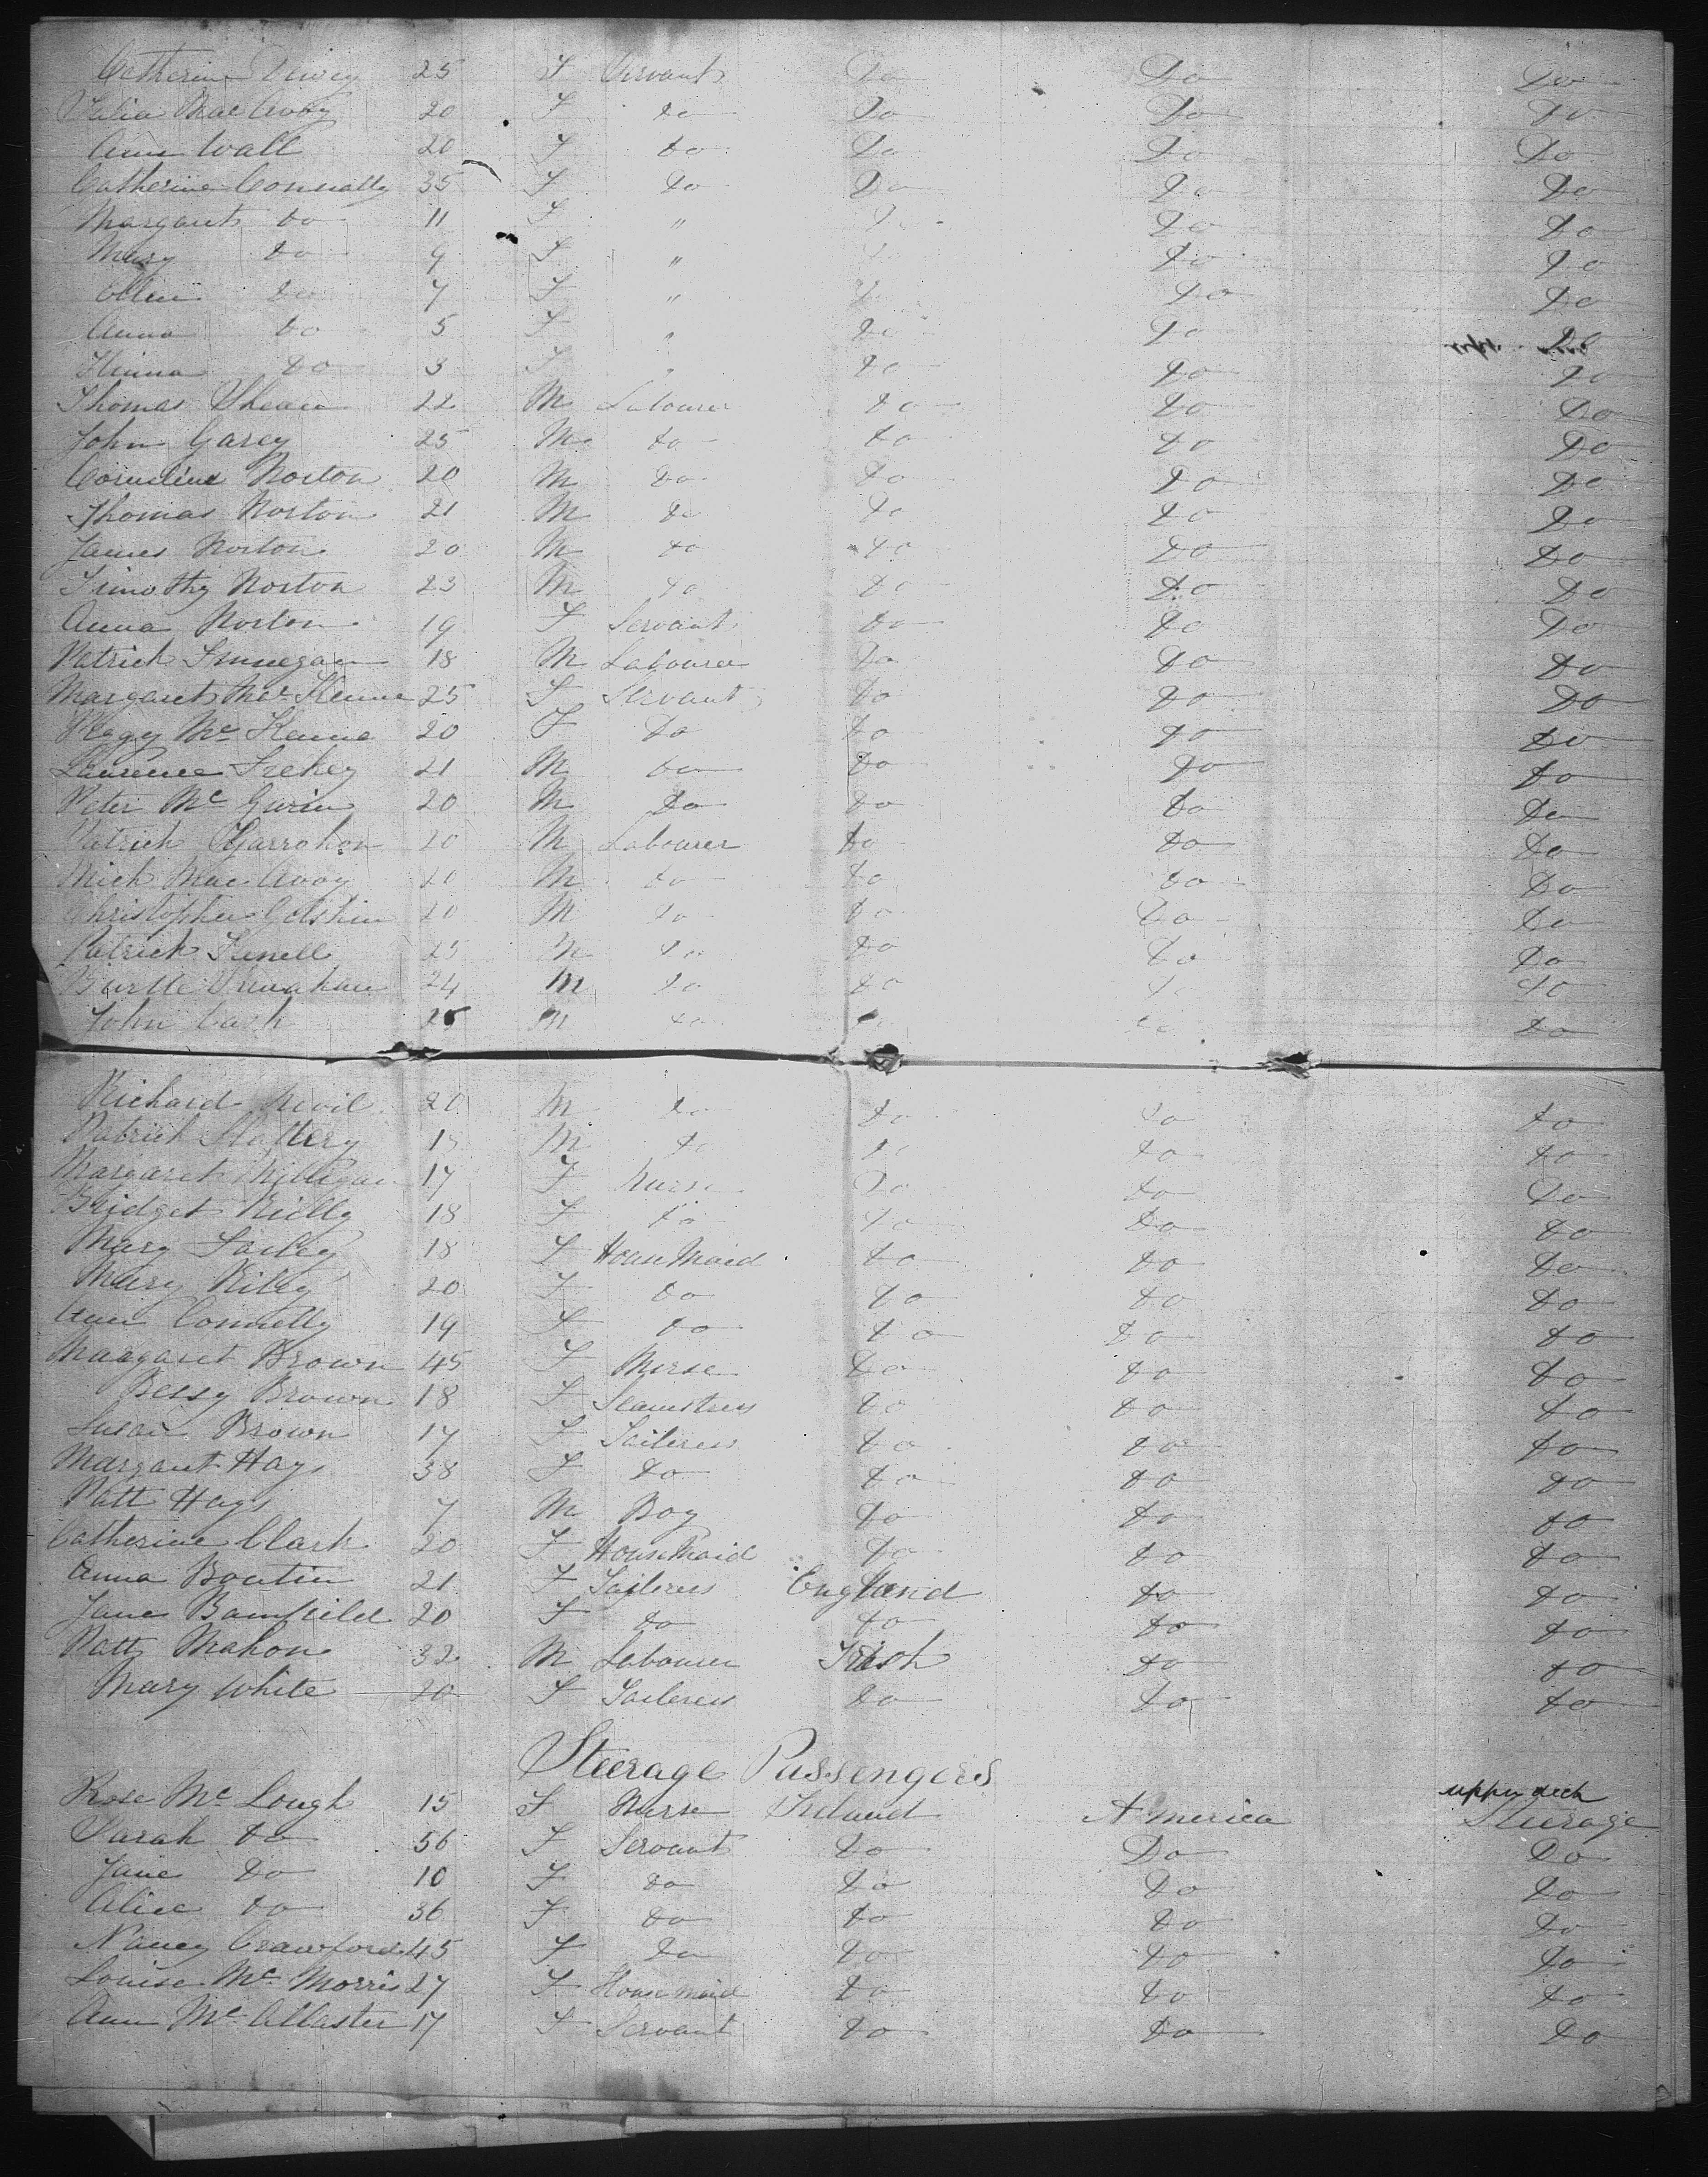 Catherine Dewey 25 F Servant Do Do Do
Julia Mac Avoy 20 F do Do Do Do
Ann Wall 20 F do Do Do Do
Catherine Connally 35 F do Do Do Do
Margaret do 11 F " Do do
Mary do 9 F " Do do
Ellen do 7 F " Do do
Anna do 5 F " do Do do
do 3 F " do do do
Thomas 22 M Labourer do do Do
John Garey 25 M do do do Do
Norton 20 M do do do Do
Thomas Norton 21 M do do do Do
James Norton 20 M do do do Do
Timothy Norton 23 M do do do Do
Anna Norton 19 F Servant do do Do
Patrick Finnegan 18 M Labourer do do Do
Margaret Mc Kenna 25 F Servant do do Do
Pegy Mc Kenna 20 F do do do Do
Laurence 21 M do do do do
Peter Mc 20 M do do do do
Patrick 20 M Labourer do do do
Mich Mac Avoy 20 M do do do Do
Christopher 20 M do do do do
Patrick 25 M do do do do
24 M do do do do
John Cash 25 M do do do do
Richard Nevil 20 M do do do do
Patrick Slattery M do do do do
Margaret Milligan 17 F Nurse Do do do
Bridget Rielly 18 F do do Do do
Mary 18 F House Maid do do do
Mary Riley 20 F do do do do
Ann Connelly 19 F do do do do
Margaret Brown 45 F Nurse do do do
Bessy Brown 18 F Seamstress do do do
Susan Brown 17 F Taileress do do do
Margaret Hays 38 F do do do do
Patt Hays 7 M Boy do do do
Catherine Clark 20 F House Maid do do do
Anna Boutin 21 F Taileress England do do
Jane Bamfield 20 F do do do do
Patt Mahon 32 M Labourer Irish do do
Mary White 20 F Taileress do do do
Steerage Passengers
upper deck
Rose Mc Lough 15 F Nurse Ireland America Steerage
Sarah do 56 F Servant do Do Do
Jane do 10 F do do Do do
Alice do 36 F do do do do
Nancy Crawford 45 F do do do do
Louisa Mc Morris 27 F House maid do do do
Ann Mc Allaster 17 F Servant do do do